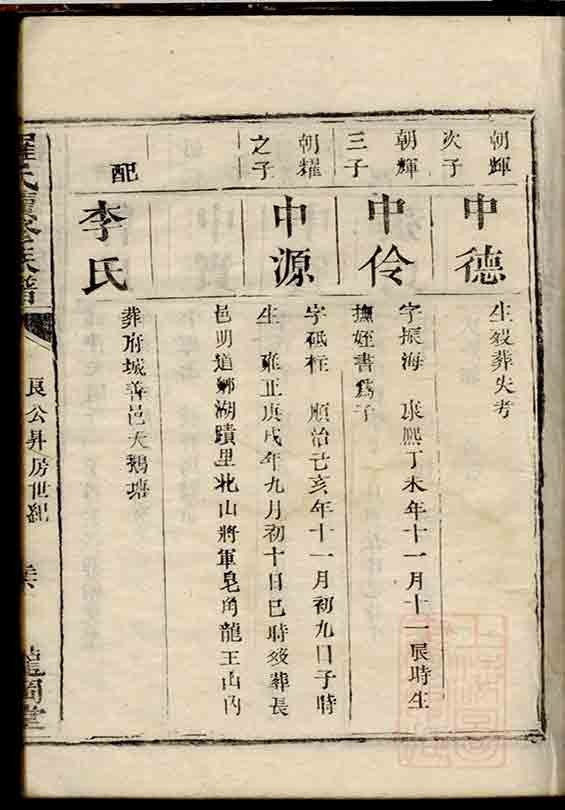 朝輝
次子
中德
生歿葬失考
朝輝
三子
中伶
字振海 康熙丁未年十一月十一辰時生
撫姪書爲子
朝耀
之子
中源
字砥柱 順治己亥年十一月初九日子時
生 雍正庚戌年九月初十日巳時歿葬長
邑明道鄉湖蹟里北山將軍皂角龍王山內
配
李氏
葬府城善邑天鵝塘
羅氏續修族譜
良公昇房世紀